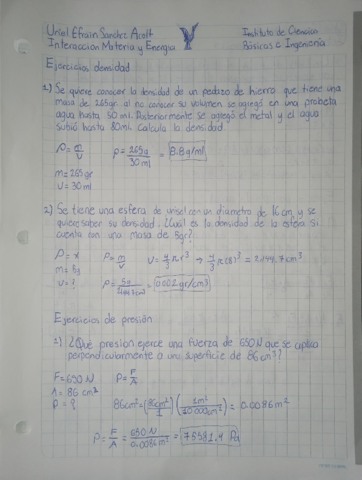 Uriel Efrain Sanchez Acolt
Instituto de Ciencias
Interaccion Materia y Energia
Básicas e Ingeniería
Ejercicios densidad
1) Se quiere conocer la densidad de un pedazo de hierro que tiene una
masa de 265gr al no conocer su volumen se agregó en una probeta
agua hasta 50 ml. Posteriormente se agregó el metal y el agua
subió hasta 80ml. Calcula la densidad
ρ = m/v ρ = 265g/30ml = 8.8g/ml
m = 265gr
v = 30ml
2) Se tiene una esfera de unisel con un diametro de 16cm y se
quiere saber su densidad. ¿Cuál es la densidad de la esfera si
cuenta con una masa de 5gr?
ρ = x ρ = m/v v = 4/3 πr³ → 4/3 π(8)³ = 2144.7cm³
m = 5g
v = ? ρ = 5g/2144.7cm³ = 0.002gr/cm3
Ejercicios de presión
1) ¿Qué presion ejerce una fuerza de 650N que se aplica
perpendicularmente a una superficie de 86cm²?
F = 650 N P = F/A
A = 86 cm²
P = ? 86cm² = (86cm²/1)(1m²/10 000cm²) = 0.0086m²
P = F/A = 650 N/0.0086m² = 75581.4 Pa